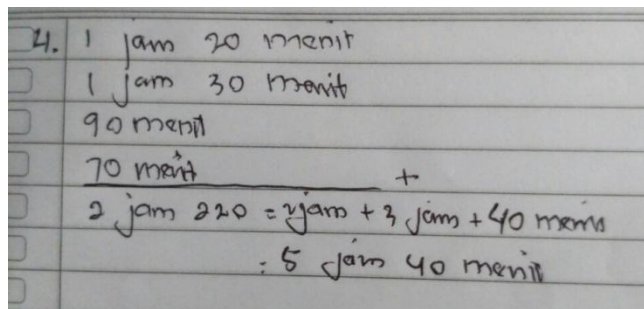 4. 1 jam 20 menit
1 jam 30 menit
90 menit
70 menit +
2 jam 220 = 2 jam + 3 jam + 40 menit
= 5 jam 40 menit